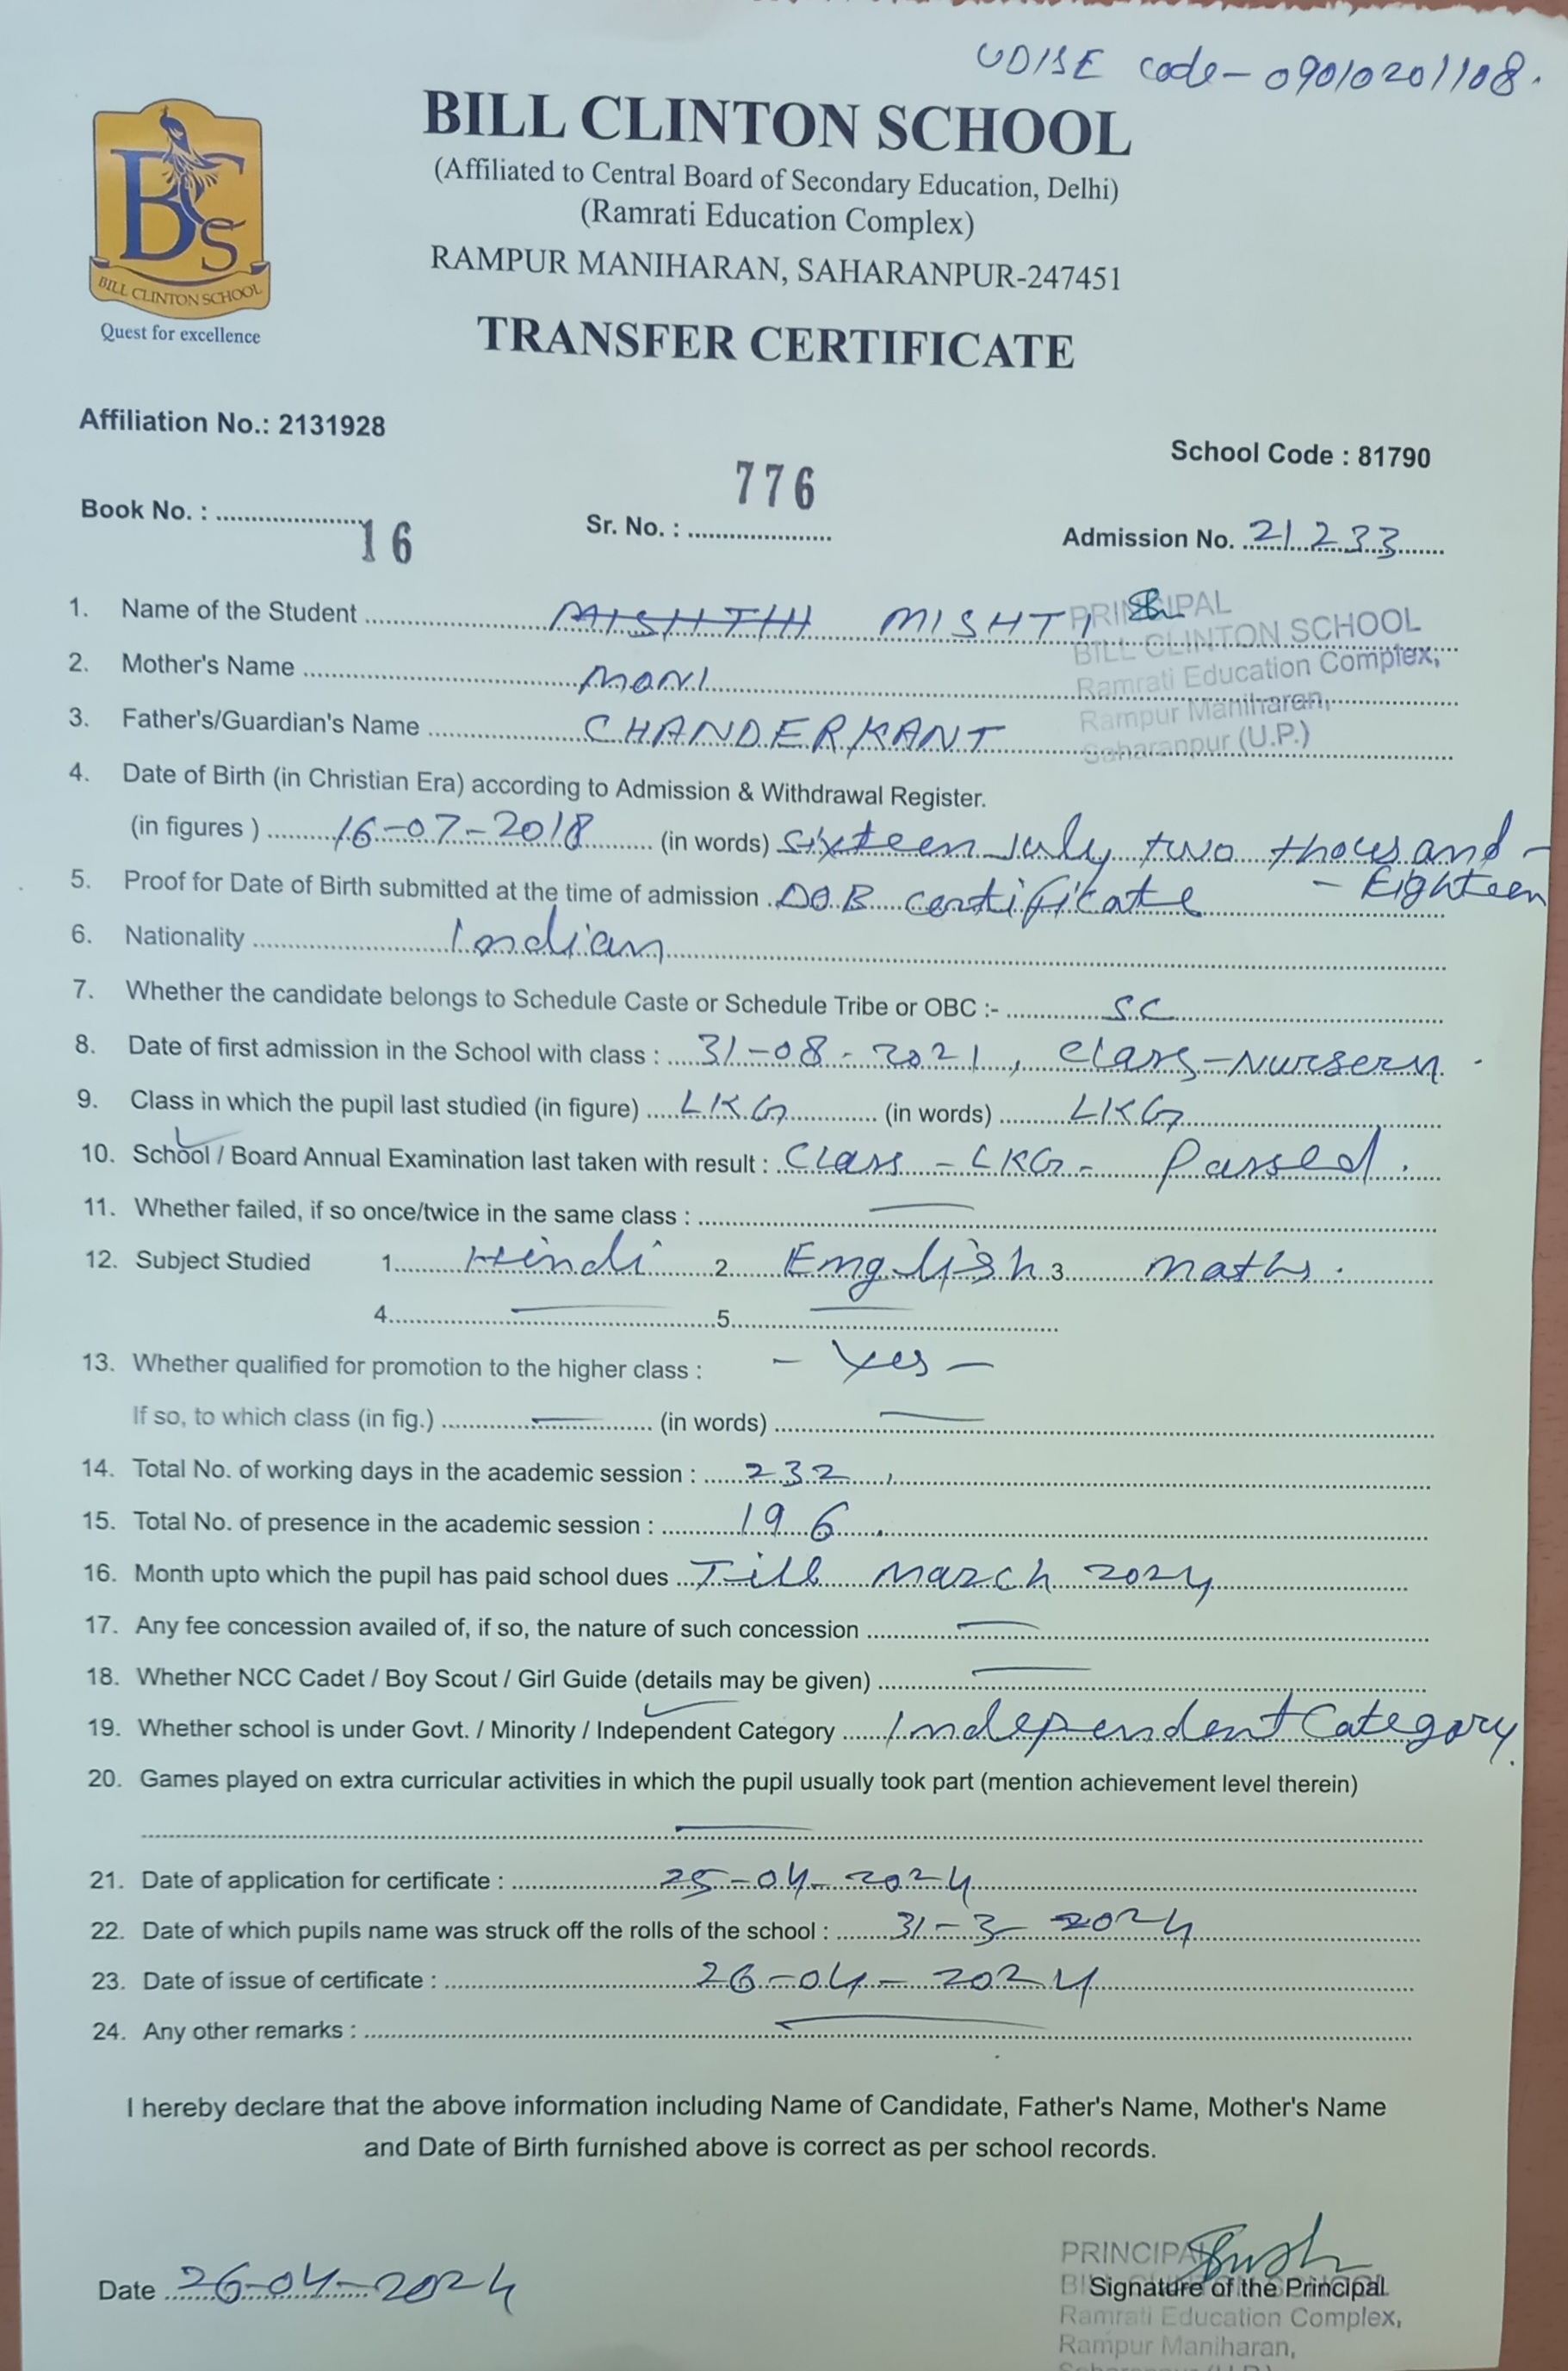 UDISE code- 09010201108.
BILL CLINTON SCHOOL
(Affiliated to Central Board of Secondary Education, Delhi)
(Ramrati Education Complex)
RAMPUR MANIHARAN, SAHARANPUR-247451
BCS
BILL CLINTON SCHOOL
Quest for excellence
TRANSFER CERTIFICATE
Affiliation No.: 2131928
School Code : 81790
Book No. : 16 Sr. No. : 776 Admission No. 21233
1. Name of the Student MISHTHI MISHTI
PRINCIPAL
BILL CLINTON SCHOOL
Ramrati Education Complex,
Rampur Maniharan,
Saharanpur (U.P.)
2. Mother's Name MONI
3. Father's/Guardian's Name CHANDERKANT
4. Date of Birth (in Christian Era) according to Admission & Withdrawal Register.
(in figures ) 16-07-2018 (in words) Sixteen July two thousand -
- Eighteen
5. Proof for Date of Birth submitted at the time of admission DOB certificate
6. Nationality Indian
7. Whether the candidate belongs to Schedule Caste or Schedule Tribe or OBC :- SC
8. Date of first admission in the School with class : 31-08-2021, Class-Nursery.
9. Class in which the pupil last studied (in figure) LKG (in words) LKG
10. School / Board Annual Examination last taken with result : Class - LKG - Passed.
11. Whether failed, if so once/twice in the same class : —
12. Subject Studied 1. Hindi 2. English 3. maths.
4. — 5. —
13. Whether qualified for promotion to the higher class : - Yes -
If so, to which class (in fig.) — (in words) —
14. Total No. of working days in the academic session : 232,
15. Total No. of presence in the academic session : 196.
16. Month upto which the pupil has paid school dues Till March 2024
17. Any fee concession availed of, if so, the nature of such concession —
18. Whether NCC Cadet / Boy Scout / Girl Guide (details may be given) —
19. Whether school is under Govt. / Minority / Independent Category Independent Category.
20. Games played on extra curricular activities in which the pupil usually took part (mention achievement level therein)
—
21. Date of application for certificate : 25-04-2024
22. Date of which pupils name was struck off the rolls of the school : 31-3-2024
23. Date of issue of certificate : 26-04-2024
24. Any other remarks : —
I hereby declare that the above information including Name of Candidate, Father's Name, Mother's Name
and Date of Birth furnished above is correct as per school records.
Date 26-04-2024
PRINCIPAL
Signature of the Principal
Ramrati Education Complex,
Rampur Maniharan,